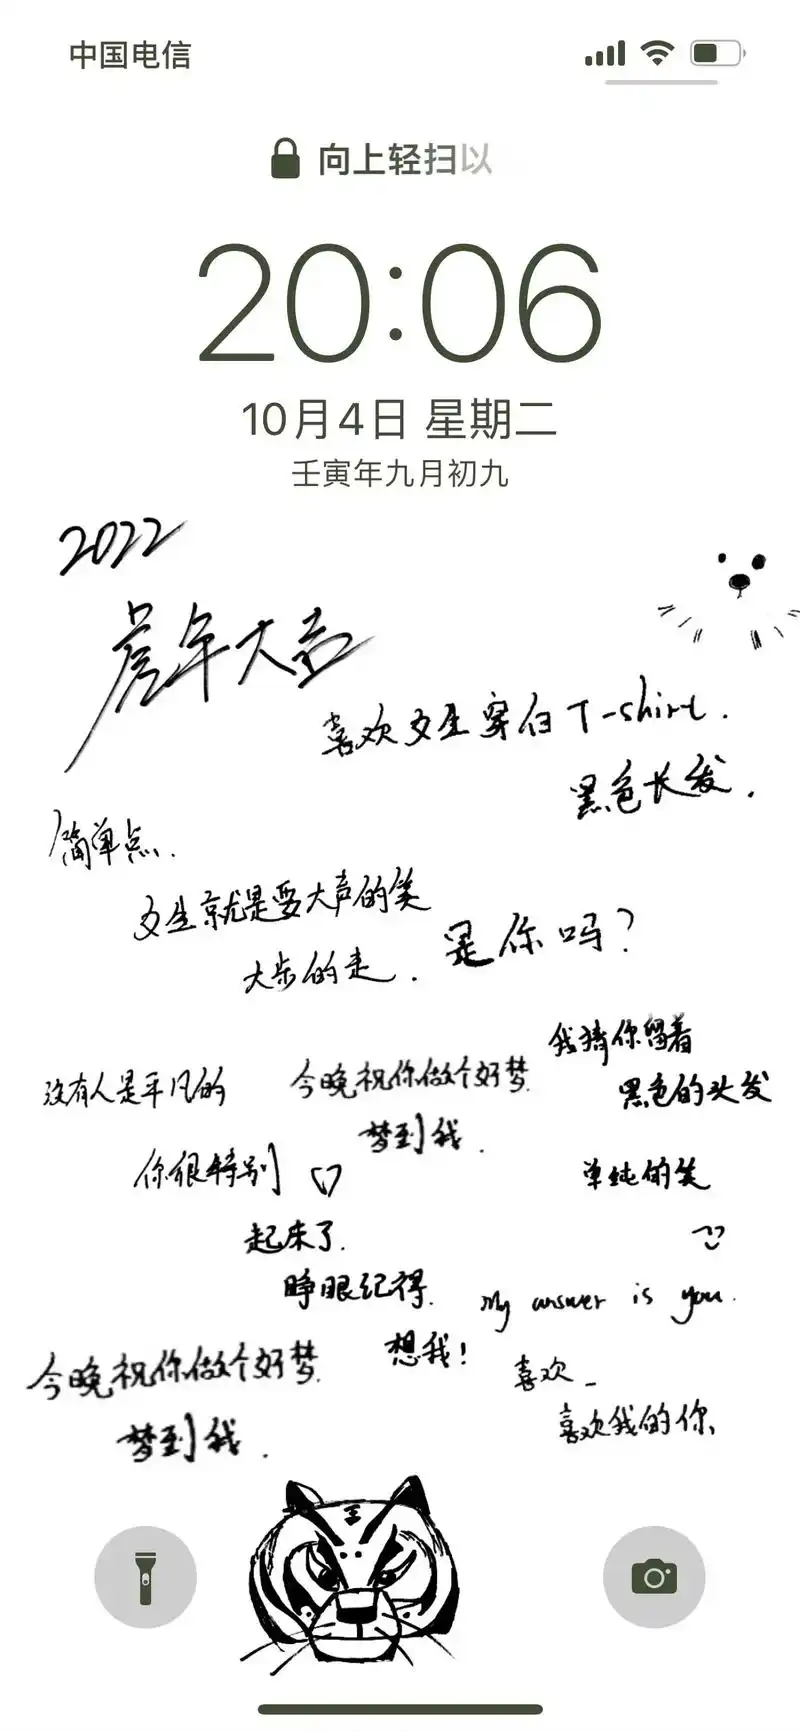 中国电信
向上轻扫以
20:06
10月4日 星期二
壬寅年九月初九
2022
虎年大吉
喜欢女生穿白T-shirt.
黑色长发.
简单点.
女生就是要大声的笑
大步的走.
是你吗?
我猜你留着
黑色的头发
单纯的笑
没有人是平凡的
你很特别
今晚祝你做个好梦.
梦到我.
起来了.
睁眼记得.
想我!
My answer is you.
喜欢_
喜欢我的你.
今晚祝你做个好梦.
梦到我.
王